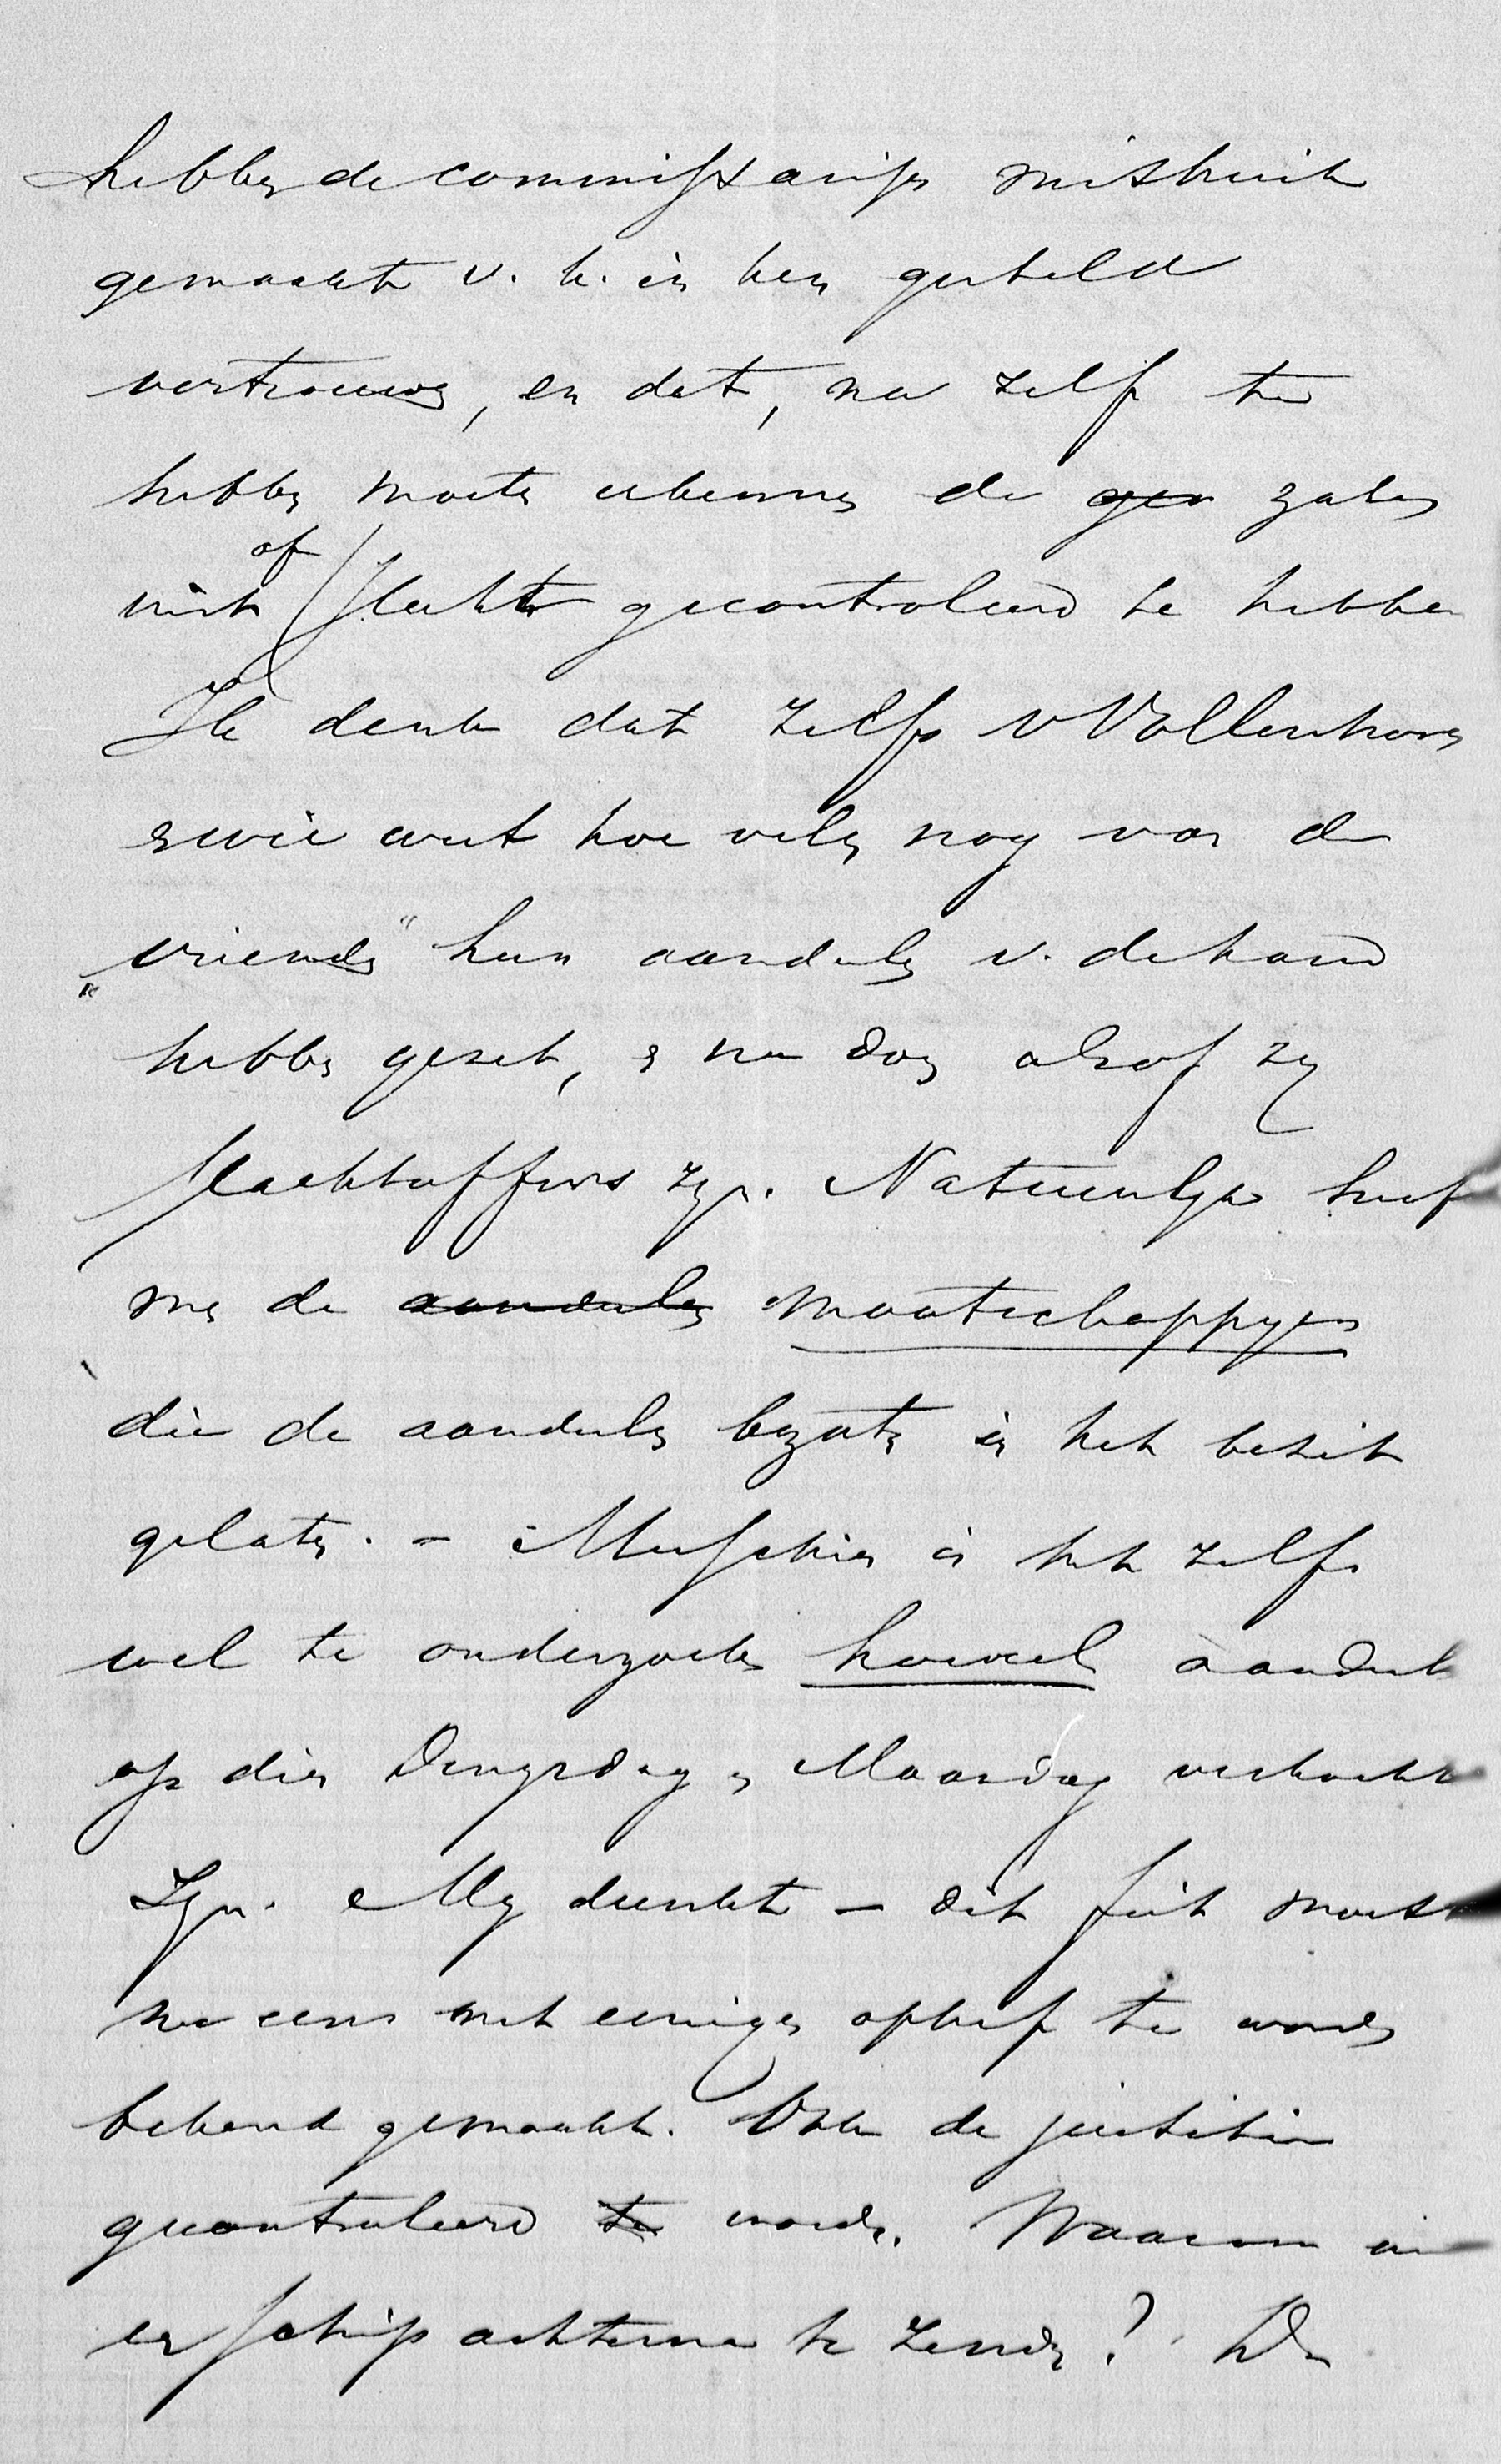 hebben de commissarissen misbruik
gemaakt v. h. in hen gesteld
vertrouwen, en dat, na zelf te
hebben moeten erkennen de gen zaken
niet of slecht gecontroleerd te hebben
Ik denk dat zelfs v Vollenhoven
en wie weet hoe velen nog van de
„vrienden" hun aandelen v. de hand
hebben gezet, en nu doen alsof zy
slachtoffers zyn. Natuurlyk heeft
men de aandelen maatschappyen
die de aandelen bezaten in het bezit
gelaten. - Misschien is het zelfs
wel te onderzoeken hoeveel aandeelen
op dien Dingsdag en Maandag verkocht
zyn. My dunkt - dit feit moest
nu eens met eenigen ophef te worden
bekend gemaakt. Ook de justitie
gecontroleerd te worden. Waarom
er schip achterna te zenden? De